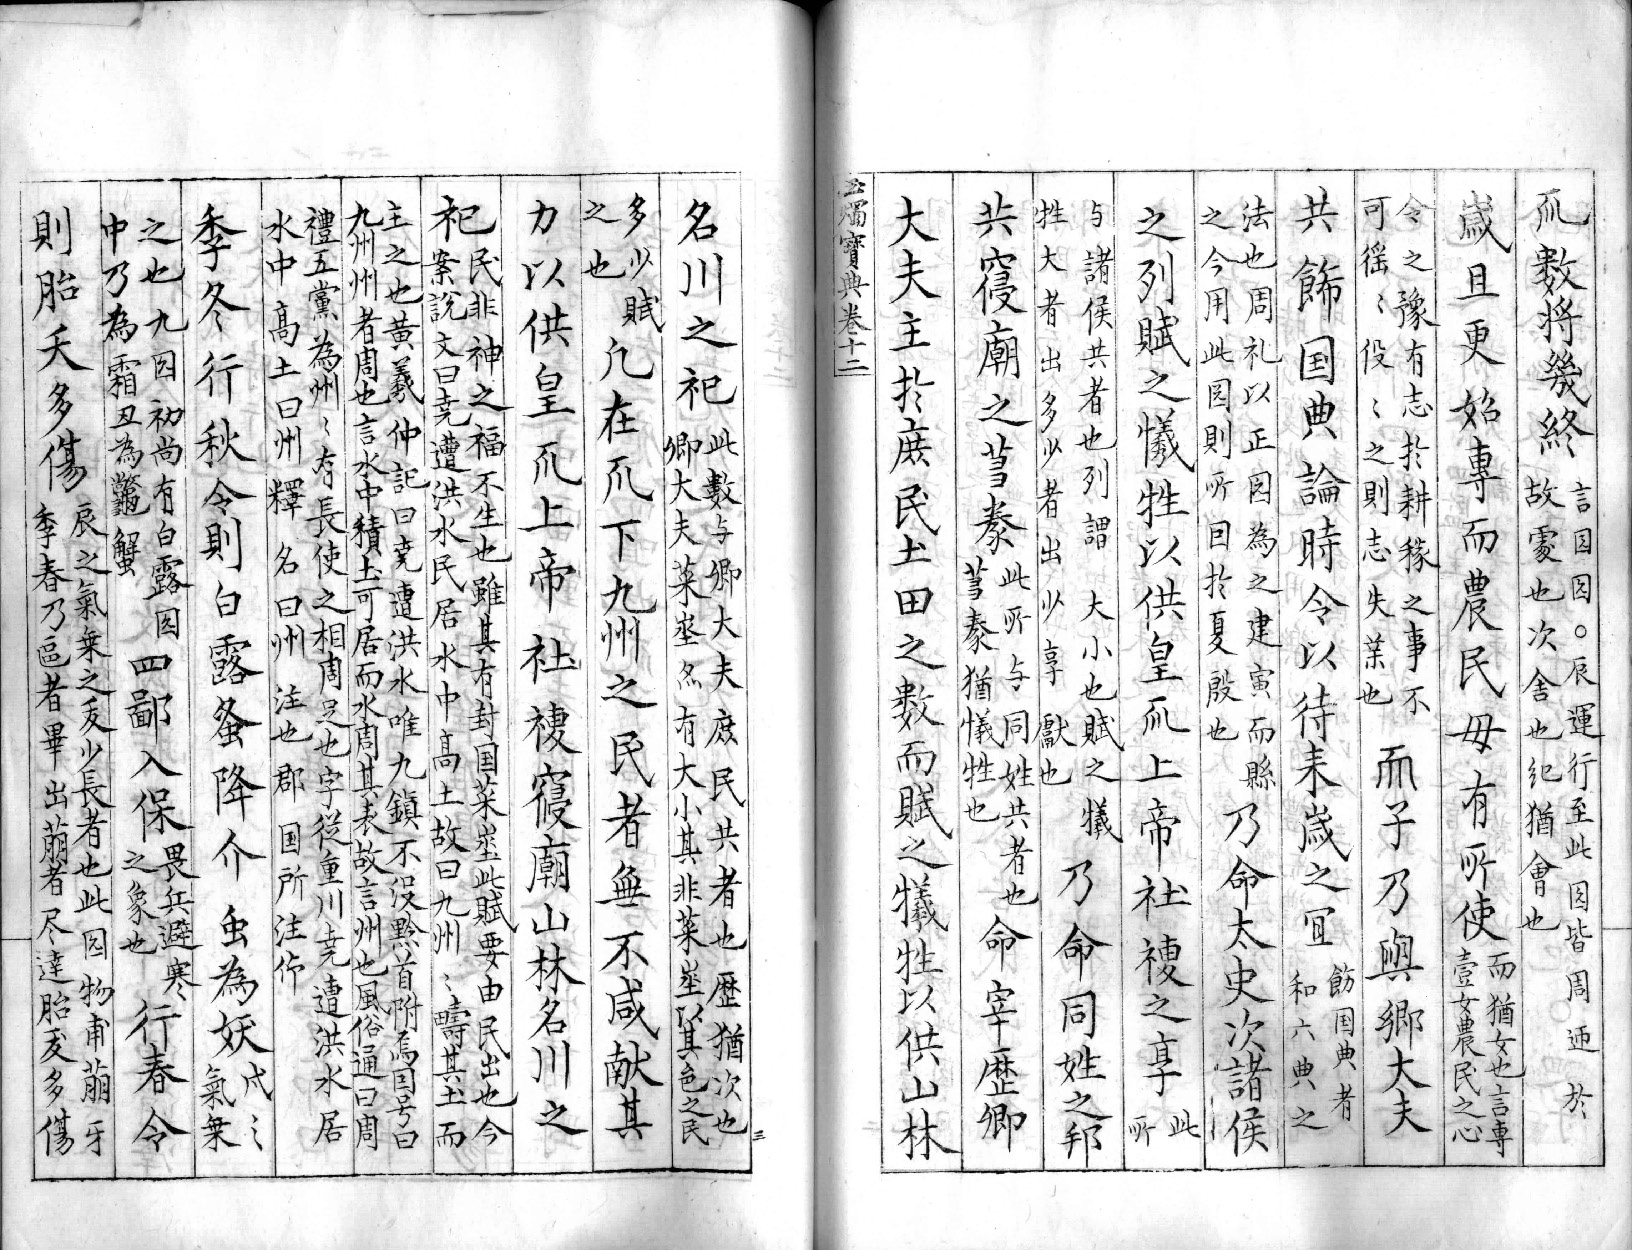 天數将幾終
言日月。辰運行至此月皆周迊於
故處也次舍也紀猶會也
歲且更始専而農民毋有所使
而猶女也言専
壹女農民之心
令之豫有志於耕稼之事不
可徭〻役〻之則志失業也
而子乃與郷大夫
共飾国典論時令以待来歲之冝
飭国典者
和六典之
法也周礼以正月為之建寅而縣
之今用此月則所因於夏殷也
乃命太史次諸侯
之列賦之犧牲以供皇天上帝社稷之享
此
所
与諸侯共者也列謂大小也賦之犧
牲大者出多少者出少享獻也
乃命同姓之邦
共寑廟之蒭豢
此所与同姓共者也
蒭豢猶犧牲也
命宰歴卿
大夫主於庶民土田之數而賦之犧牲以供山林
玉燭寳典卷十二
名川之祀
此數与卿大夫庶民共者也歴猶次也
卿大夫菜埊亦有大小其非菜埊以其邑之民
多少賦
之也
凢在天下九州之民者無不咸献其
力以供皇天上帝社稷寑廟山林名川之
祀
民非神之福不生也雖其有封国菜埊此賦要由民出也今
案說文曰尭遭洪水民居水中髙土故曰九州〻疇其土而
主之也黄羲仲記曰尭遭洪水唯九鎮不没黔首附焉因号曰
九州州者周也言水中積土可居而水周其表故言州也風俗通曰周
禮五黨為州〻有長使之相周足也字從重川尭遭洪水居
水中髙土曰州釋名曰州注也郡国所注仰
季冬行秋令則白露蚤降介虫為妖
戌之
氣乗
之也九月初尚有白露月
中乃為霜丑為鼈蟹
四鄙入保
畏兵避寒
之象也
行春令
則胎夭多傷
辰之氣乗之夭少長者也此月物甫萠牙
季春乃區者畢出萠者尽達胎夭多傷
三